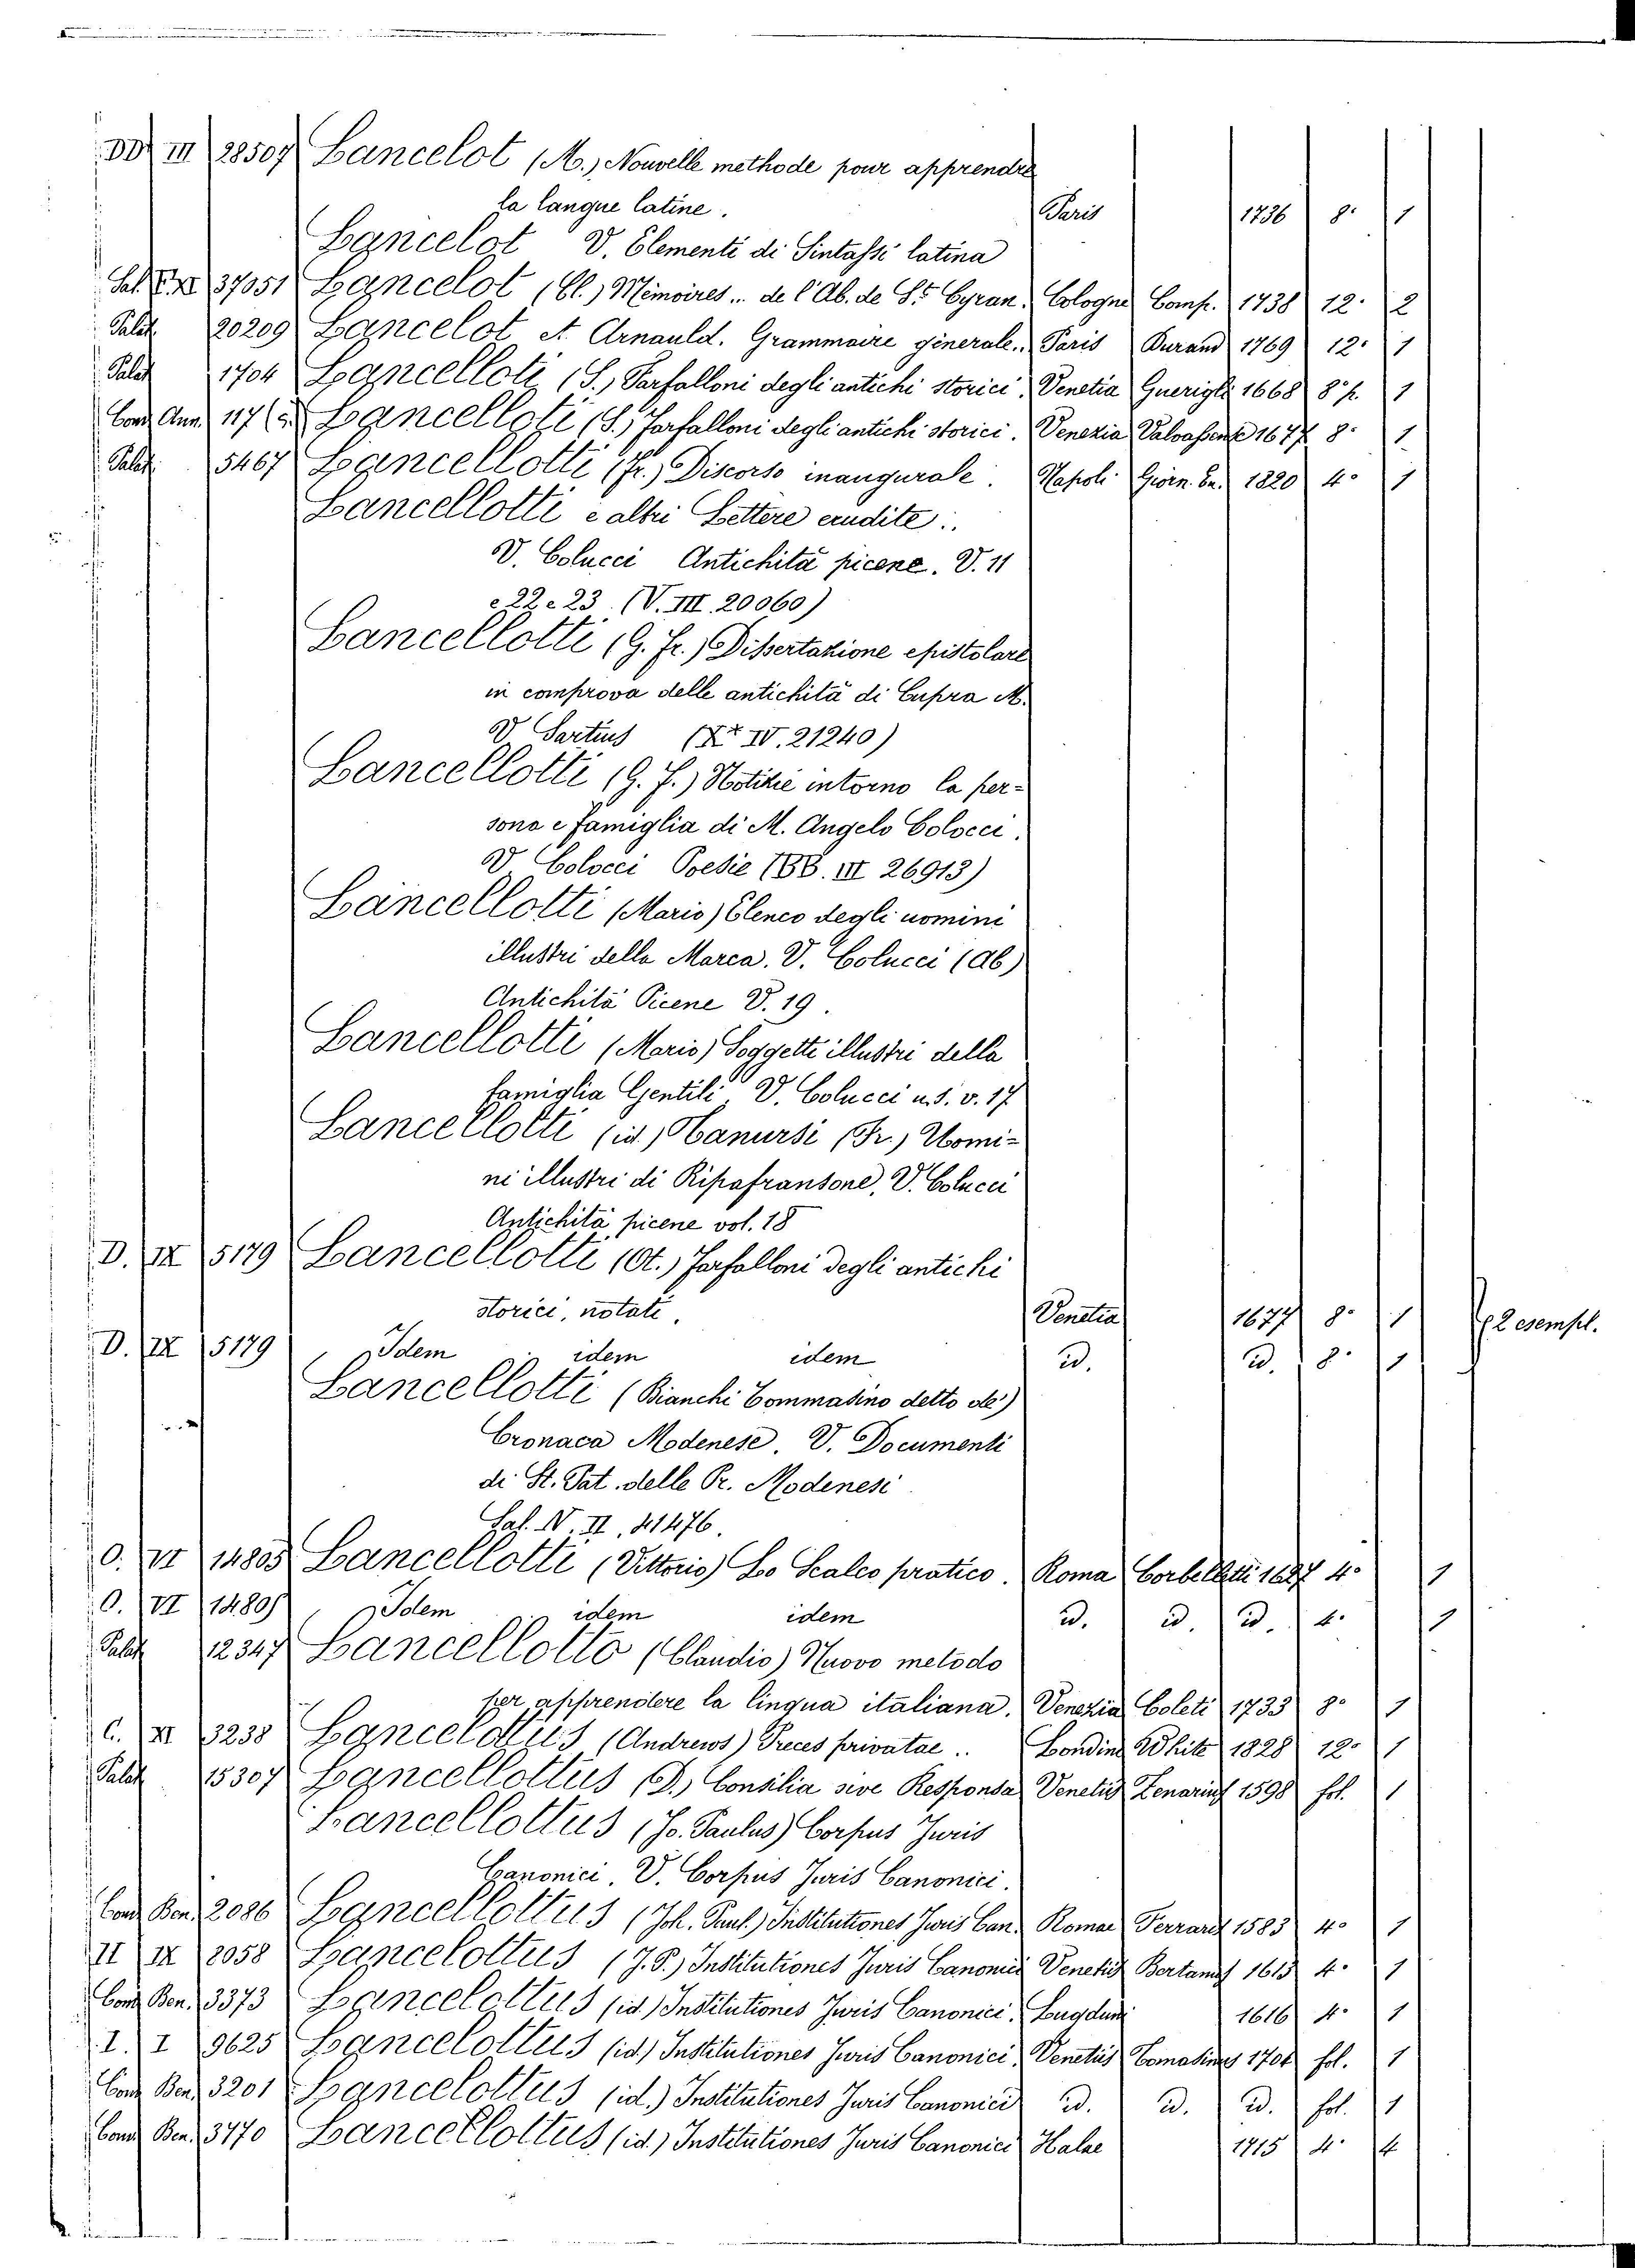 DD III 28507 Lancelot (M.) Nouvelle methode pour apprendre
la langue latine. Paris 1736 8° 1
Lancelot V. Elementi di Sintassi latina
37051 Lancelot (Cl.) Mémoires .. de l'Ab. de St Cyran. Cologne Comp. 1738 12° 2
Palat. 20209 Lancelot et Arnauld. Grammaire générale.. Paris Durand 1769 12° 1
Palat 1704 Lancelloti (S.) Farfalloni degli antichi storici. Venetia Guerigli 1668 8° p. 1
Conv Ann. 117 Lancelloti (S.) Farfalloni degli antichi storici. Venezia Valvassense 1677 8° 1
Palat. 5467 Lancellotti (Fr.) Discorso inaugurale. Napoli Giorn. En. 1820 4° 1
Lancellotti e altri Lettere erudite..
V. Colucci Antichità picene. V. 11
e 22 e 23. (V. III. 20060)
Lancellotti (G. Fr.) Dissertazione epistolare
in comprova delle antichità di Cupra M.
V Sartius IV. 21240)
Lancellotti (G. F.) Notizie intorno la per=
sona e famiglia di M. Angelo Colocci.
V. Colocci Poesie (BB. III 26913)
Lancellotti (Mario) Elenco degli uomini
illustri della Marca. V. Colucci (Ab)
Antichità Picene V. 19.
Lancellotti (Mario) Soggetti illustri della
famiglia Gentili. V. Colucci u.s. v. 17
Lancellotti (id.) Hanursi (Fr.) Uomi=
ni illustri di Ripafransone, V. Colucci
Antichità picene vol. 18
D. IX 5179 Lancellotti (Ot.) Farfalloni degli antichi
storici, notati. Venetia 1677 8° 1 2 esempl.
D. IX 5179 Idem idem idem id. id. 8° 1
Lancellotti (Bianchi Tommasino detto de)
Cronaca Modenese. V. Documenti
di St. Pat. delle Pr. Modenesi
Sal. N. II, 41476.
O. VI 14805 Lancellotti (Vittorio) Lo Scalco pratico. Roma Corbelletti 1627 4° 1
O. VI 14805 Idem idem idem id. id. id. 4° 1
Palat 12347 Lancellotto (Claudio) Nuovo metodo
per apprendere la lingua italiana. Venezia Coleti 1733 8° 1
C. XI 3238 Lancelottus (Andrews) Preces privatae .. Londini White 1828 12° 1
Palat 15307 Lancellottus (F.) Consilia sive Responsa Venetiis Zenarius 1598 fol. 1
Lancellottus (Jo. Paulus) Corpus Juris
Canonici. V. Corpus Juris Canonici.
Conv Ben. 2086 Lancellottus (Joh. Paul.) Institutiones Juris Can. Romae Ferrarius 1583 4° 1
II IX 2058 Lancelottus (J. P.) Institutiones Juris Canonici Venetiis Bertanus 1613 4° 1
Conv Ben. 3373 Lancelottus (id.) Institutiones Juris Canonici. Lugduni 1616 4° 1
I. I 9625 Lancelottus (id.) Institutiones Juris Canonici. Venetiis Tomasinus 1704 fol. 1
Conv Ben. 3201 Lancelottus (id.) Institutiones Juris Canonici id. id. id. fol. 1
Conv Ben. 3770 Lancellottus (id.) Institutiones Juris Canonici Halae 1715 4° 4